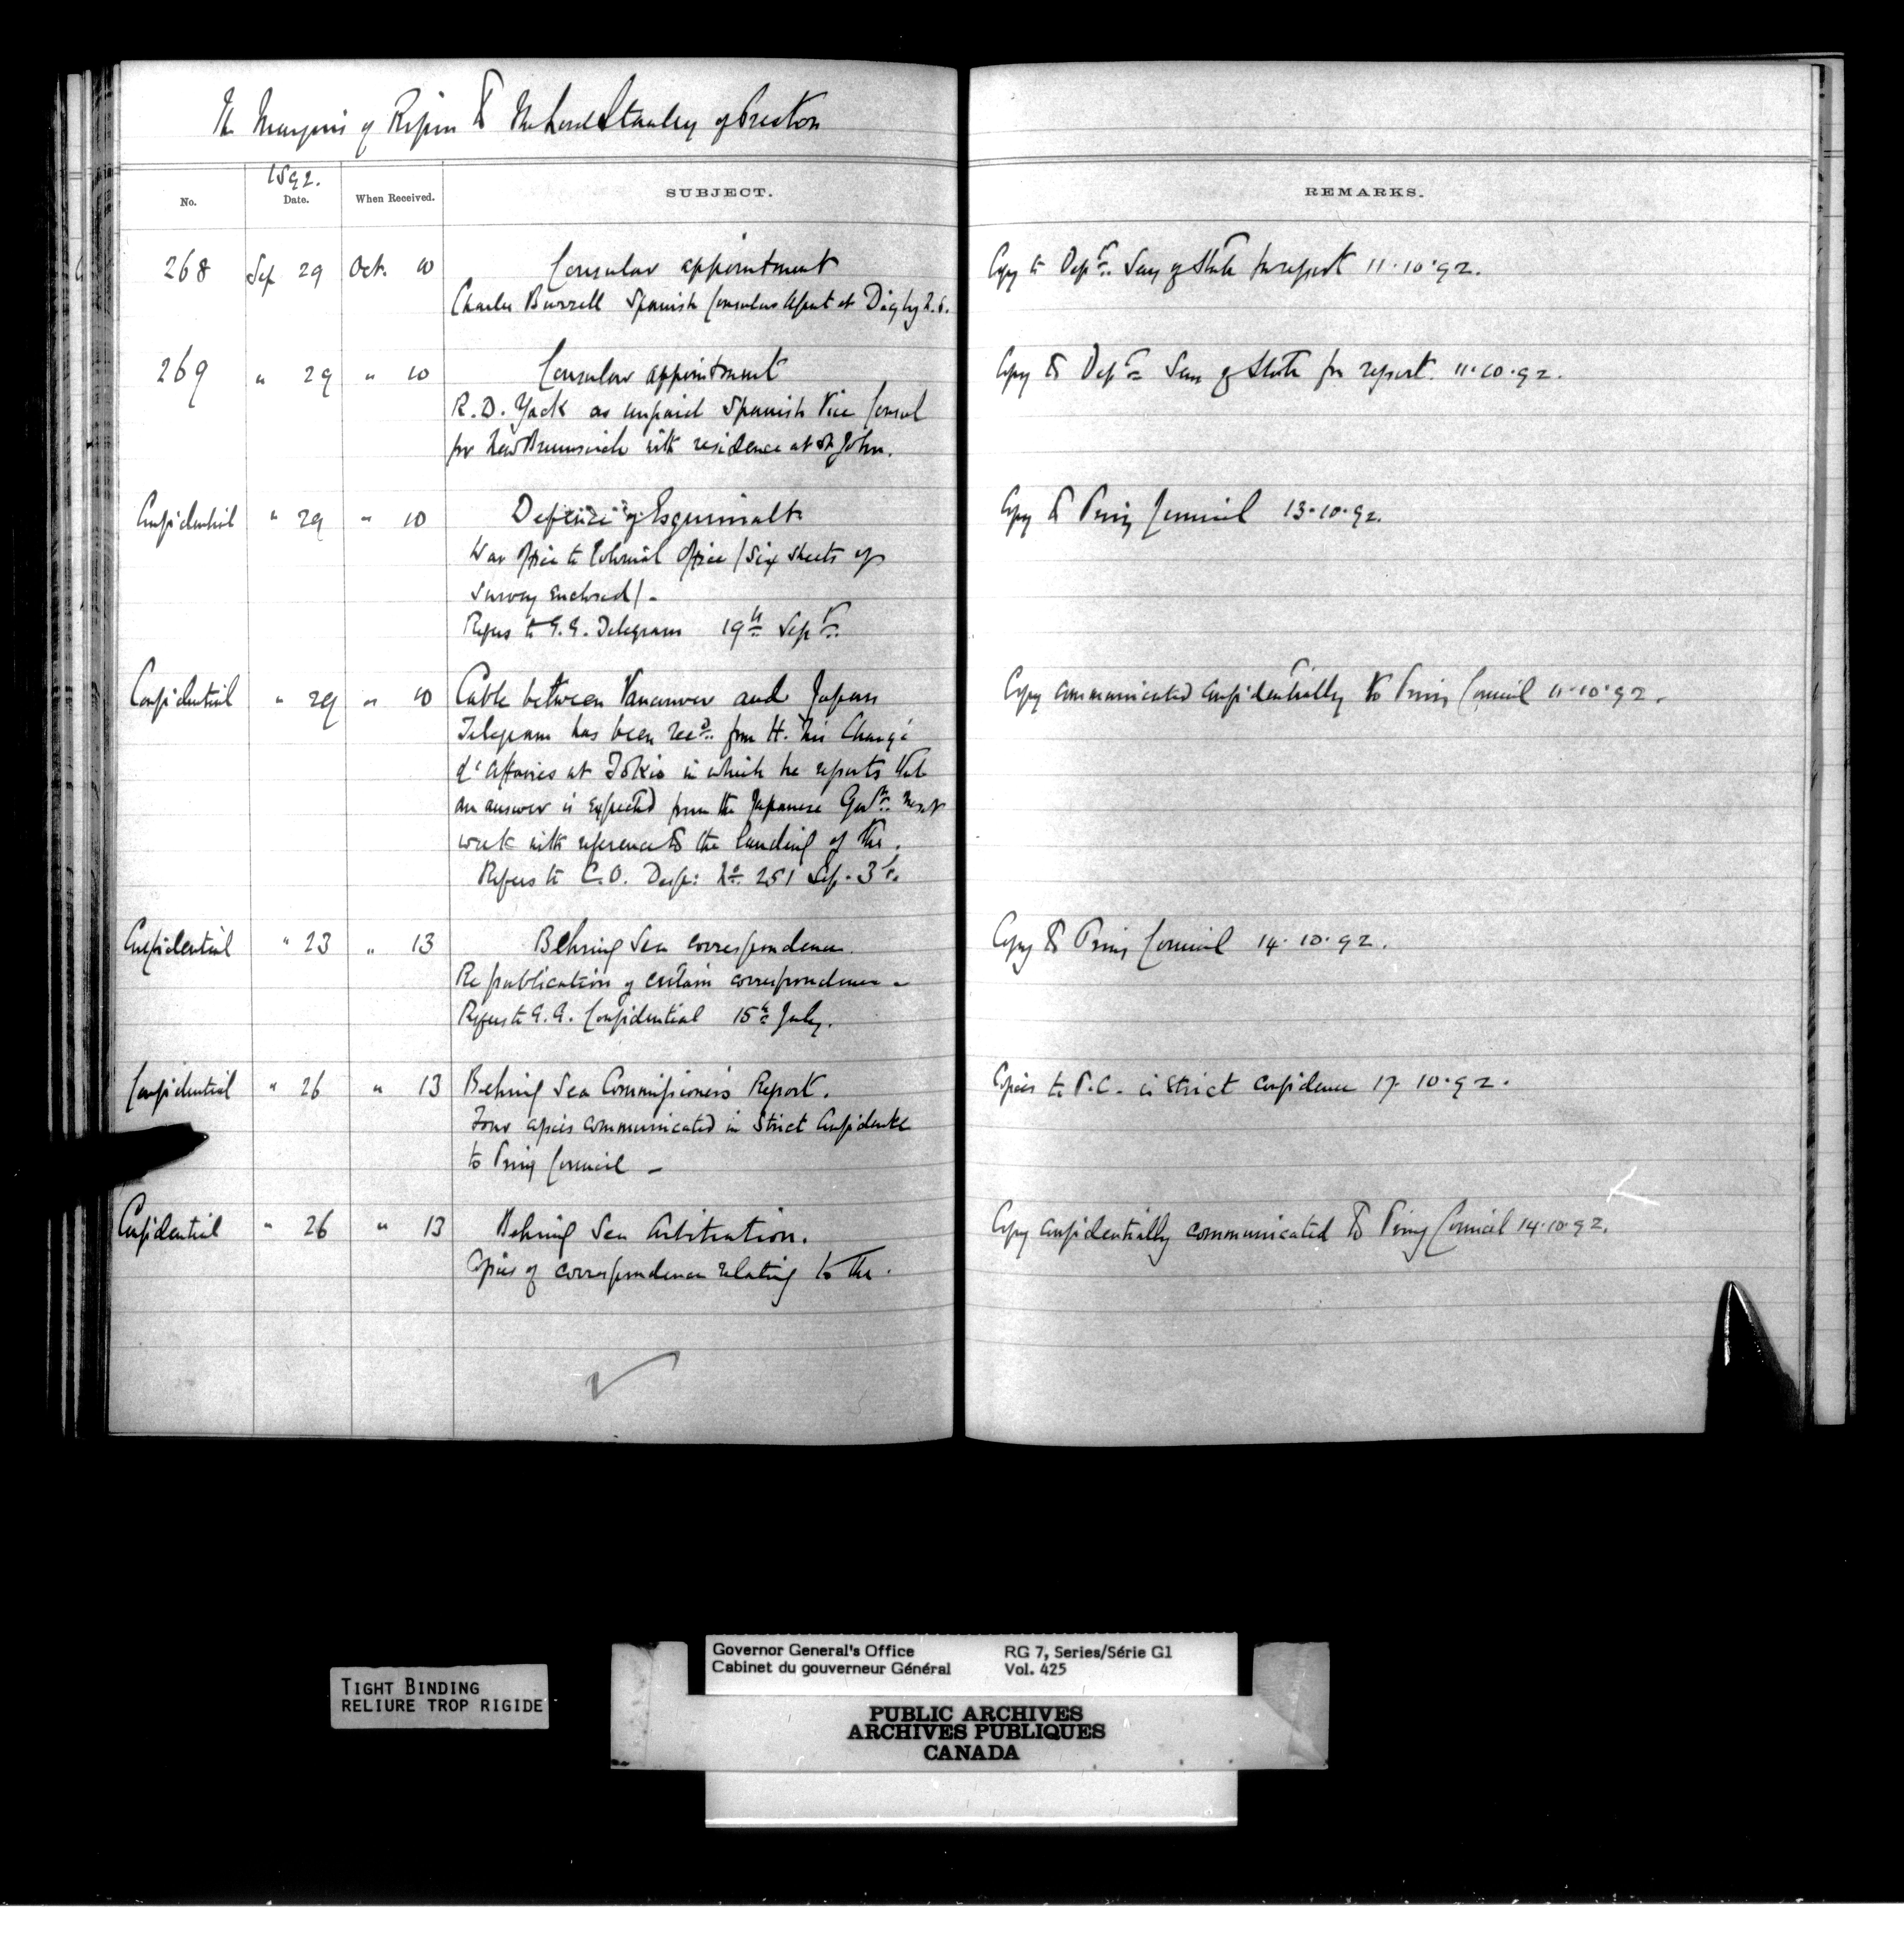 The Marquis of Ripon To The Lord Stanley of Preston
1892.
No. Date. When Received. SUBJECT. REMARKS.
268 Sep 29 Oct. 10 Consular appointment Copy to Dept. Secy of State for report 11.10.92.
Charles Burrell Spanish Consular Agent at Digby N.S.
269 " 29 " 10 Consular appointment Copy to Dept. Secy of State for report. 11.10.92.
R. D. Yack as unpaid Spanish Vice Consul
for New Brunswick with residence at St John.
Confidential " 29 " 10 Defence of Esquimalt Copy to Privy Council 13.10.92.
War Office to Colonial Office (six sheets of
survey enclosed) -
Refers to G.G. Telegram 19th Sept.
Confidential " 29 " 10 Cable between Vancouver and Japan Copy communicated confidentially to Privy Council 11.10.92.
Telegram has been recd. from H. M's Chargé
d'Affaires at Tokio in which he reports that
an answer is expected from the Japanese Govt. next
week with reference to the landing of the.
Refers to C.O. Desp: No. 251 Sep.
Confidential " 23 " 13 Behring Sea correspondence. Copy to Privy Council 14.10.92.
Re publication of certain correspondence -
Refers to G.G. Confidential 15th July.
Confidential " 26 " 13 Behring Sea Commissioners Report. Copies to P.C. in strict confidence 17.10.92.
Four copies communicated in strict confidence
to Privy Council -
Confidential " 26 " 13 Behring Sea Arbitration. Copy confidentially communicated to Privy Council 14.10.92.
Copies of correspondence relating to the.
TIGHT BINDING
RELIURE TROP RIGIDE
Governor General's Office RG 7, Series/Série G1
Cabinet du gouverneur Général Vol. 425
PUBLIC ARCHIVES
ARCHIVES PUBLIQUES
CANADA